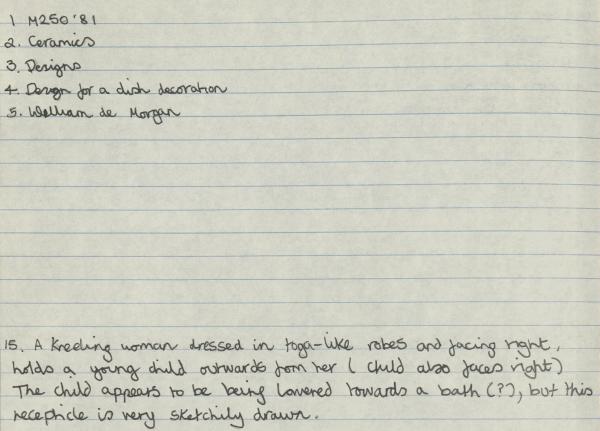 1 M250 '81
2. Ceramics
3. Designs
4. Design for a dish decoration
5. William de Morgan
15. A kneeling woman dressed in toga-like robes and facing right,
holds a young child outwards from her (child also faces right)
The child appears to be being lowered towards a bath (?), but this
recepticle is very sketchily drawn.